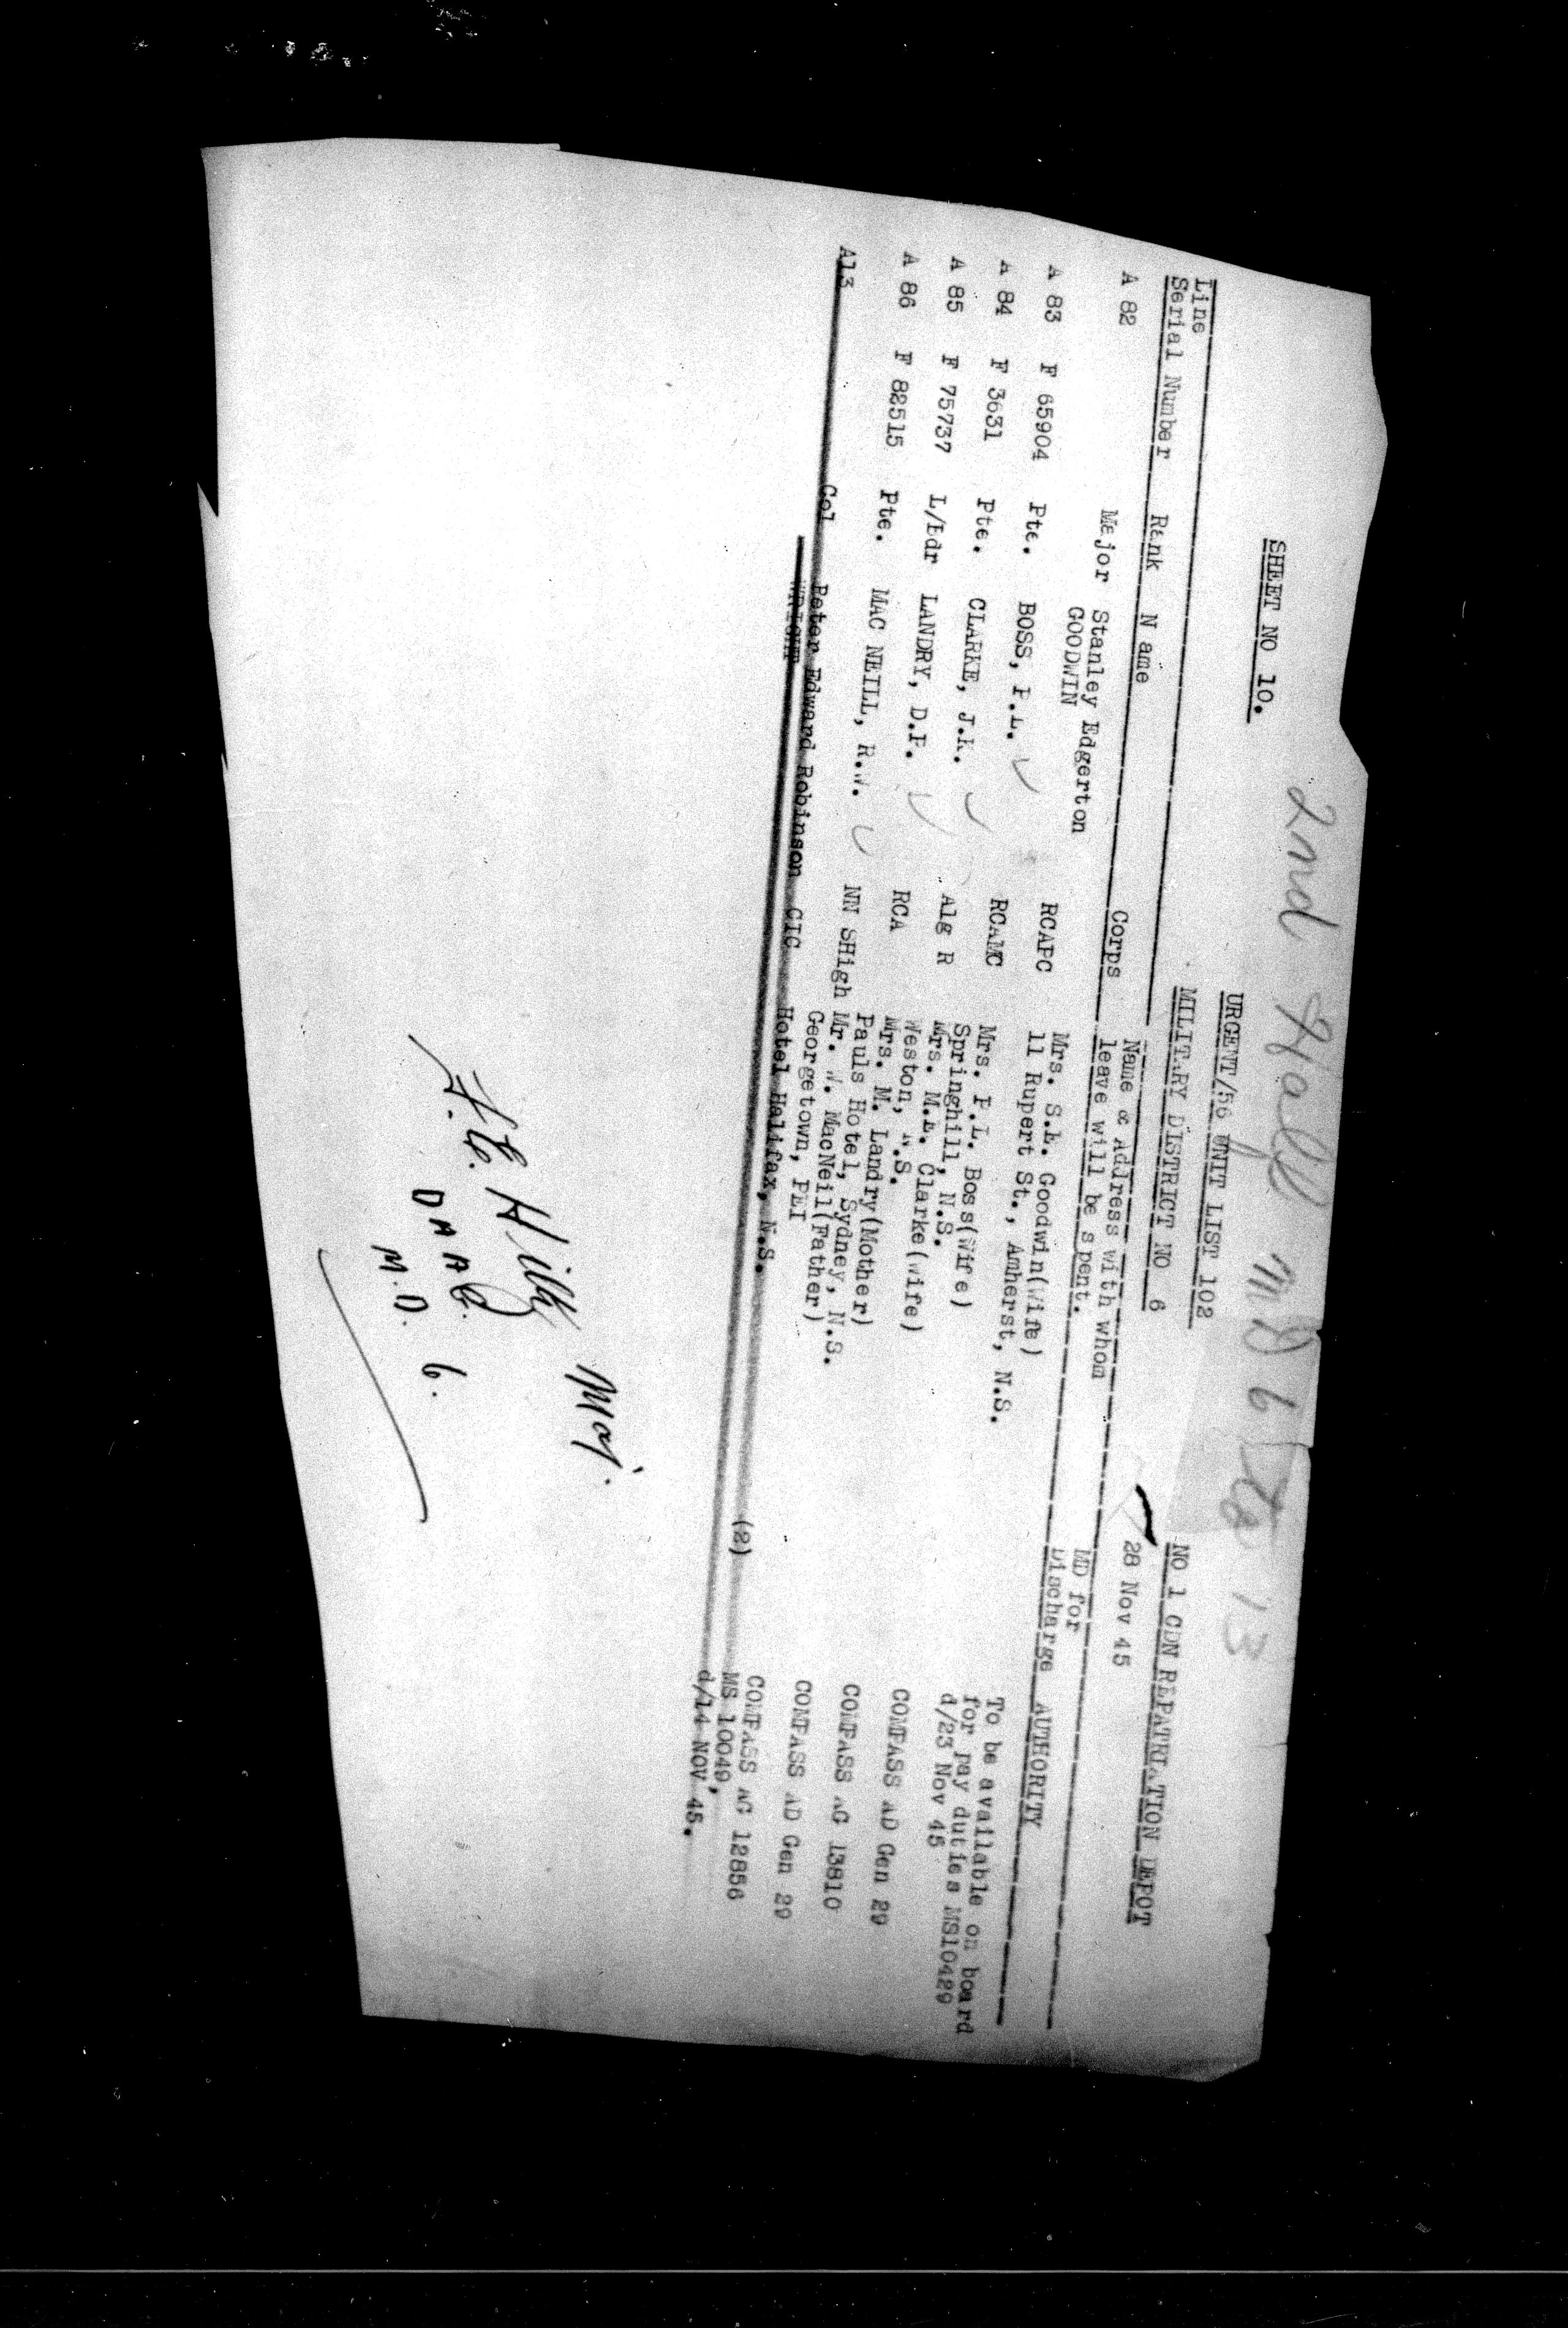 2nd Half MD 6 13
SHEET NO 10.
URGENT/56 UNIT LIST 102
MILITARY DISTRICT NO 6
NO 1 CDN REPATRIATION DEPOT
28 Nov 45
Line
Serial Number Rank N ame Corps Name & Address with whom leave will be spent. MD for Discharge AUTHORITY
A 82 Major Stanley Edgerton RCAPC Mrs. S.E. Goodwin(Wife) To be available on board
GOODWIN 11 Rupert St., Amherst, N.S. for pay duties MS10429
d/23 Nov 45
A 83 F 65904 Pte. BOSS, P.L. RCAMC Mrs. P.L. Boss(Wife) COMPASS AD Gen 29
Springhill, N.S.
A 84 F 3631 Pte. CLARKE, J.K. Alg R Mrs. M.E. Clarke(Wife) COMPASS AG 13810
Weston, N.S.
A 85 F 75737 L/Bdr LANDRY, D.F. RCA Mrs. M. Landry(Mother) COMPASS AD Gen 29
Pauls Hotel, Sydney, N.S.
A 86 F 82515 Pte. MAC NEILL, R.W. NN SHigh Mr. W. MacNeil(Father) COMPASS AG 12856
Georgetown, PEI
A13 Col Peter Edward Robinson CIC Hotel Halifax, N.S. (2) MS 10049,
WRIGHT d/14 NOV 45.
Hill Maj.
DAAG
M.D. 6.